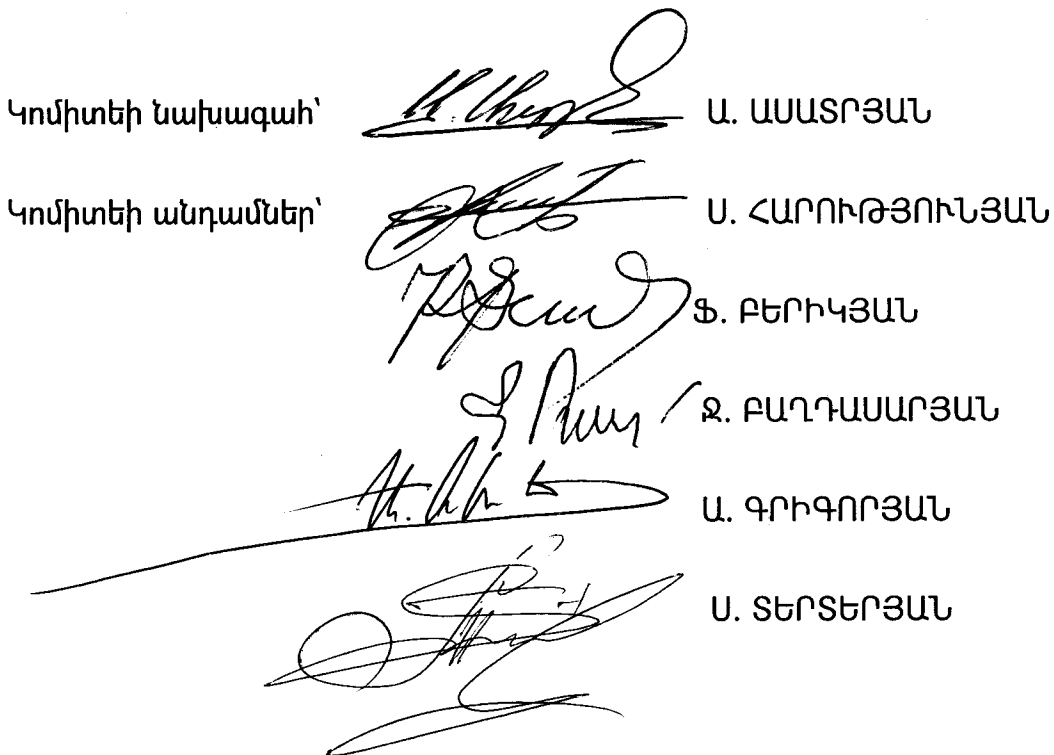 Կոմիտեի նախագահ՝ Ա. ԱՍԱՏՐՅԱՆ
Կոմիտեի անդամներ՝ Ս. ՀԱՐՈՒԹՅՈՒՆՅԱՆ
Ֆ. ԲԵՐԻԿՅԱՆ
Ջ. ԲԱՂԴԱՍԱՐՅԱՆ
Ա. ԳՐԻԳՈՐՅԱՆ
Ս. ՏԵՐՏԵՐՅԱՆ